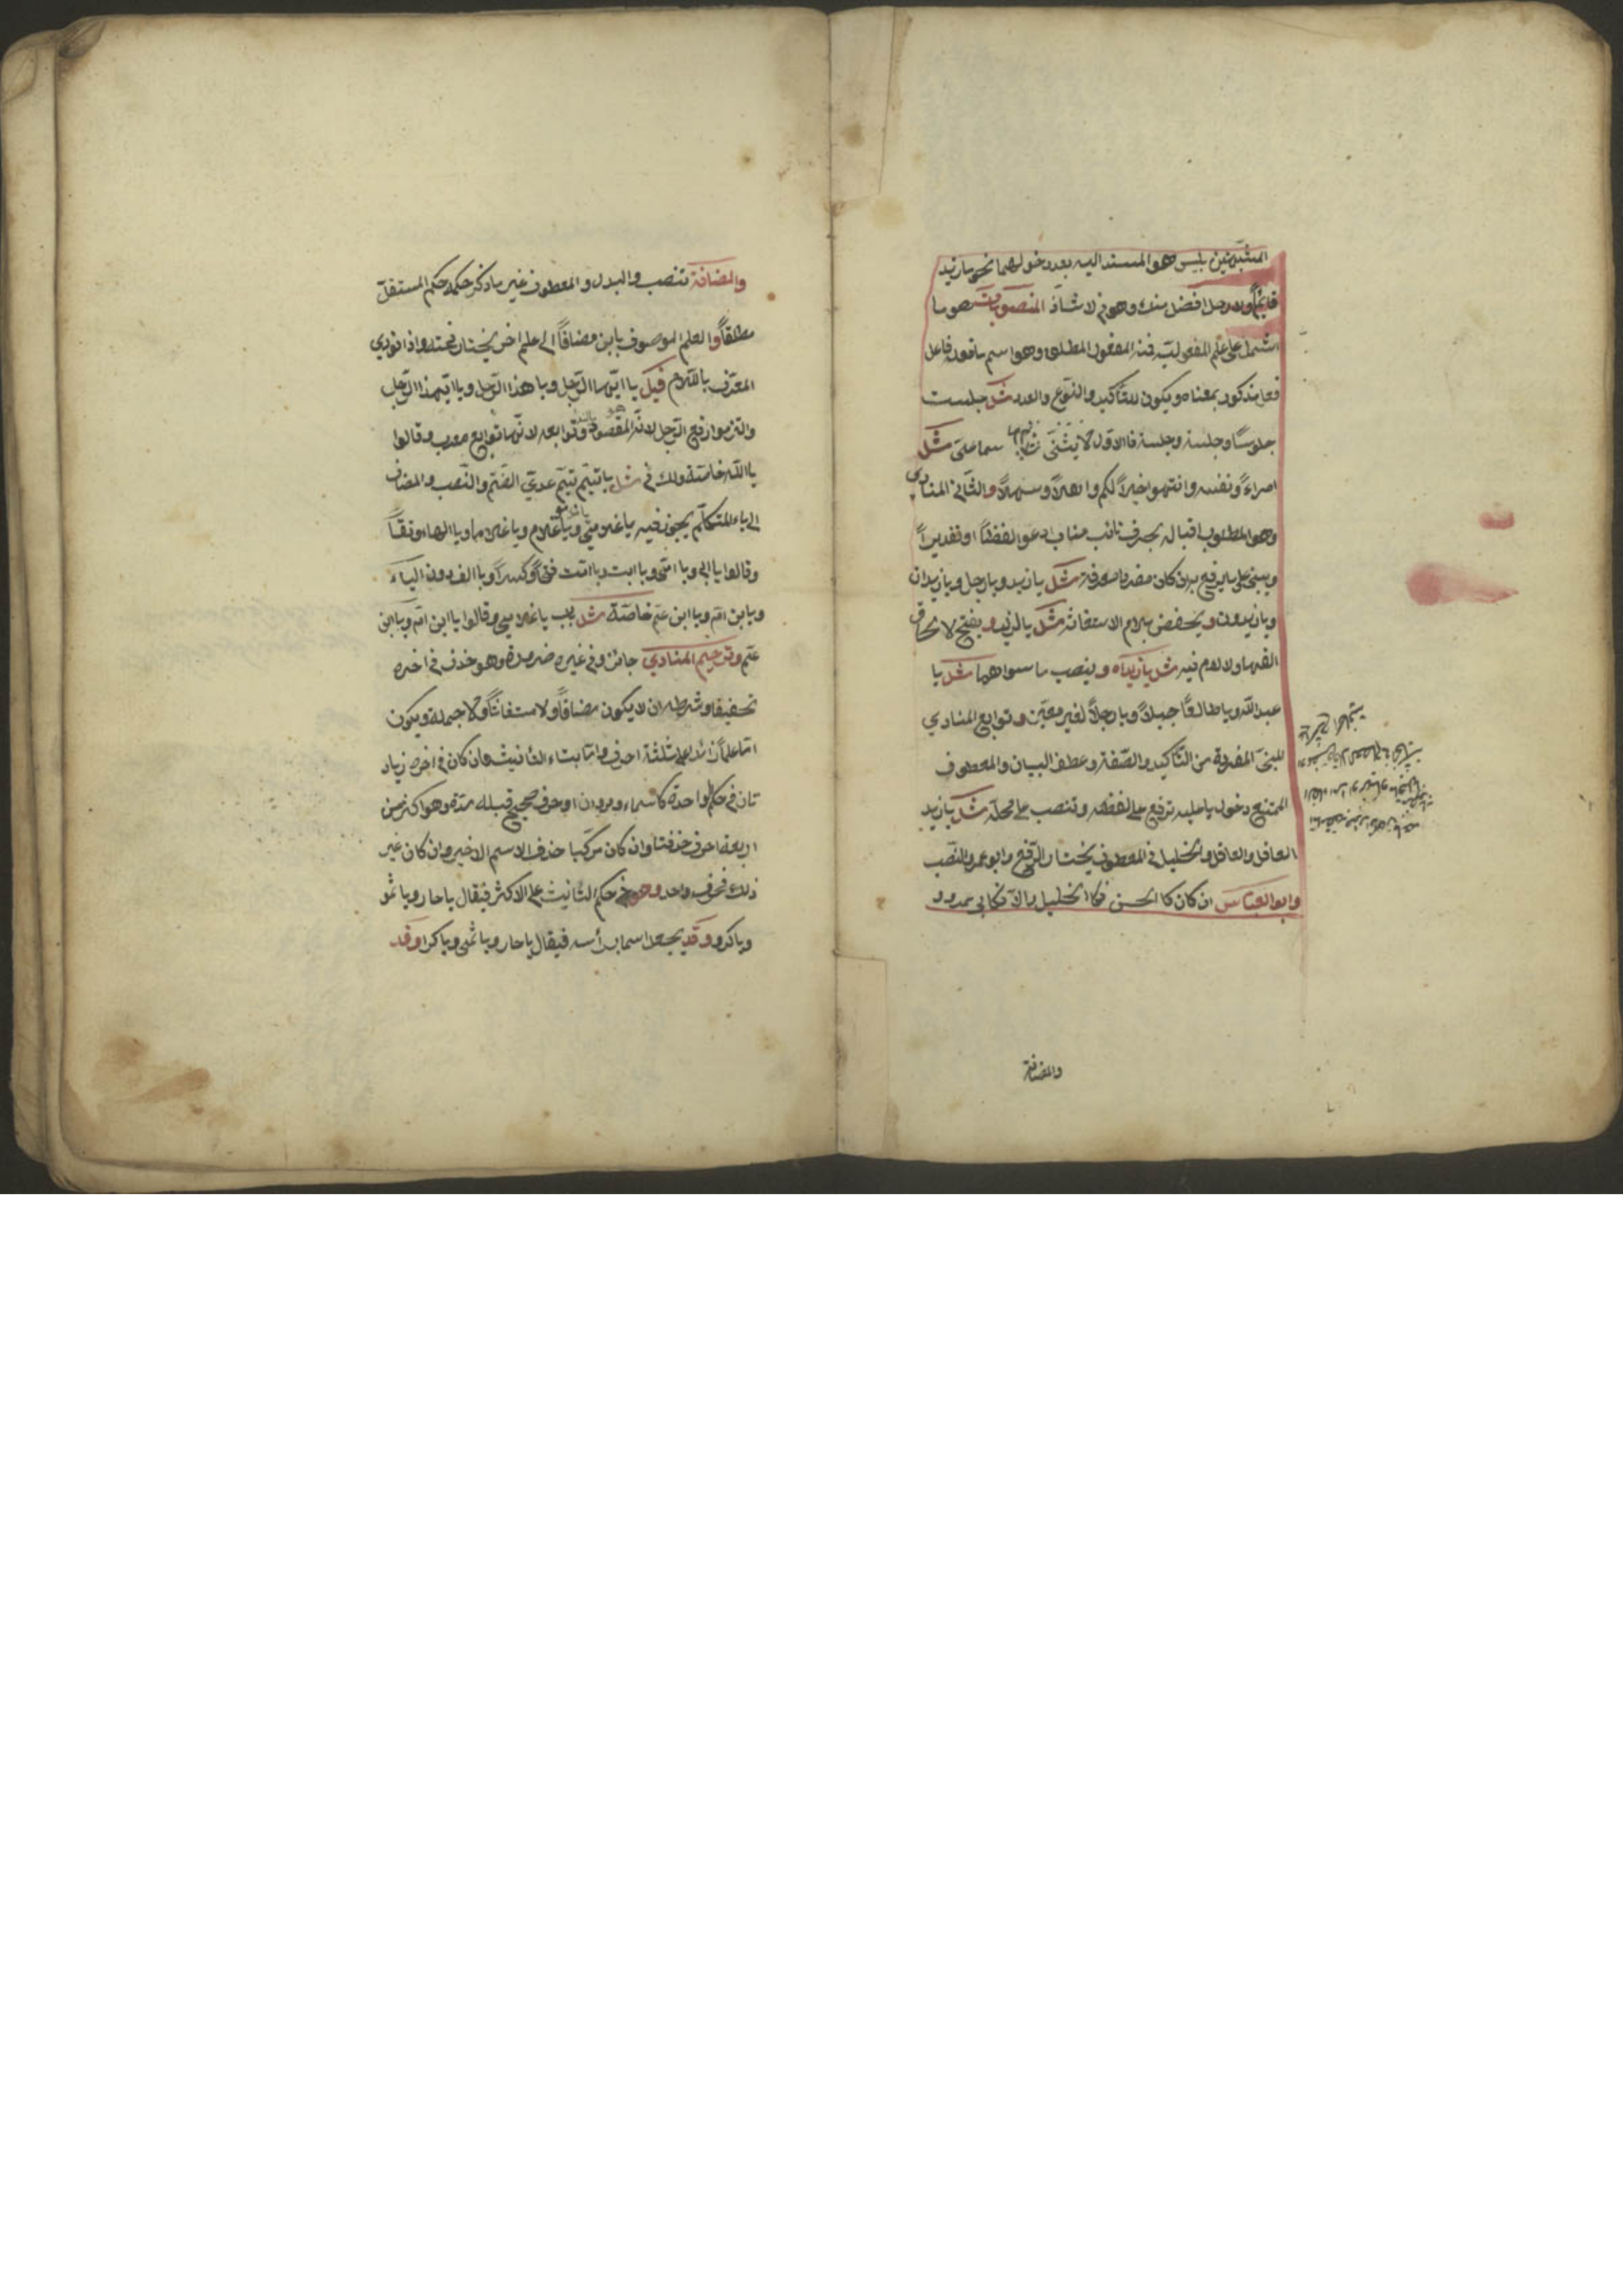 المشبهتين بليس هو المسند اليه بعد دخولهما نحو ما زيد
قايمًا ولا رجل افضل منك وهو في لا شاذ المنصوبات هو ما
اشتمل على علم المفعولية فمنه المفعول المطلق وهو اسم ما فعله فاعل
فعل مذكور بمعناه ويكون للتأكيد والنوع والعدد مثل جلست
جلوسًا وجلسة وجلسة فالاول لا يثنى سماعا مثل
امراءً ونفسه وانتهوا خيرًا لكم واهلًا وسهلًا والثاني المنادى
وهو المطلوب اقباله بحرف نائب مناب ادعو لفظًا او تقديرًا
ويبنى على ما يرفع به ان كان مفردا معرفة مثل يا زيد ويا رجل ويا زيدان
ويا زيدون ويخفض بلام الاستغاثة مثل يا لزيد ويفتح لالحاق
الفها ولا لام فيه مثل يا زيداه وينصب ما سواهما مثل يا
عبد الله ويا طالعًا جبلًا ويا رجلًا لغير معين وتوابع المنادي
المبني المفردة من التأكيد والصفة وعطف البيان والمعطوف
الممتنع دخول يا عليه ترفع على لفظه وتنصب على محله مثل يا زيد
العاقل والعاقل والخليل في المعطوف يختار الرفع وابو عمرو النصب
وابو العباس ان كان كالحسن فكالخليل والا فكابي عمرو
والمضافة
والمضافة تنصب والبدل والمعطوف غير ما ذكر حكمه حكم المستقل
مطلقًا والعلم الموصوف بابن مضافًا الى علم اخر يختار فتحه واذا نودي
المعرف باللام قيل يا ايها الرجل ويا هذا الرجل ويا ايهذا الرجل
والتزموا رفع الرجل لانه هو المقصود بالنداء وتوابعه لانها توابع معرب وقالوا
يا الله خاصة ولك في مثل يا تيم تيم عدي الضم والنصب والمضاف
الى ياء المتكلم يجوز فيه يا غلامي ويا غلام ويا غلاما وبالهاء وقفًا
وقالوا يا ابي ويا امي ويا ابت ويا امت فتحًا وكسرًا وبالالف دون الياء
ويا بن ام ويا ابن عم خاصة مثل باب يا غلامي وقالوا يا ابن ام ويا ابن
عم وترخيم المنادي جائز وفي غيره ضرورة وهو حذف في اخره
تخفيفا وشرطه ان لا يكون مضافًا ولا مستغاثًا ولا جملة ويكون
اما علمًا زائدا على ثلثة احرف واما بتاء التانيث فان كان في اخره زياد
تان في حكم الواحدة كاسماء ومروان او حرف صحيح قبله مدة وهو اكثر من
اربعة احرف حذفتا وان كان مركبا حذف الاسم الاخير وان كان غير
ذلك فحرف واحد وهو في حكم الثابت على الاكثر فيقال يا حار ويا ثمو
ويا كرو وقد يجعل اسما برأسه فيقال يا حار ويا ثمي ويا كرا وقد